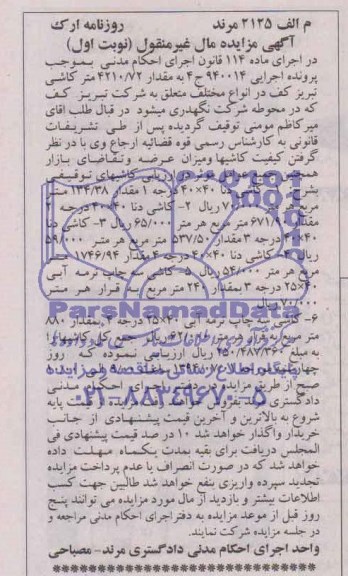 م الف ۲۱۲۵ مرند روزنامه ارک
آگهی مزایده مال غیرمنقول (نوبت اول)
در اجرای ماده ۱۱۴ قانون اجرای احکام مدنی بموجب
پرونده اجرایی ۹۴۰۰۱۴ ج۴ به مقدار ۴۲۱۰/۷۲ متر کاشی
تبریز کف در انواع مختلف متعلق به شرکت تبریز کف
که در محوطه شرکت نگهداری میشود در قبال طلب اقای
میرکاظم مومنی توقیف گردیده پس از طی تشریفات
قانونی به کارشناس رسمی قوه قضائیه ارجاع وی با در نظر
گرفتن کیفیت کاشیها ومیزان عرضه وتقاضای بازار
کاشیهای توقیفی
کاشی دنا ۴۰*۴۰ درجه ۱ مقدار ۱۳۴/۳۸ متر
ریال ۲- کاشی دنا ۴۰*۴۰ درجه ۲
مقدار متر مربع هر متر ۶۵/۰۰۰ ریال ۳- کاشی دنا
۴۰*۴۰ درجه ۳ مقدار ۵۳۷/۵۰ متر مربع هر متر ۵۹/۰۰۰
ریال کاشی دنا ۴۰*۴۰ درجه ۴ مقدار ۱۷۴۶/۹۴ متر
مربع هر متر ۵۴/۰۰۰ ریال ۵- کاشی سه چاپ نرمه آبی
۲۵*۴۰ درجه ۳ بمقدار ۲۴۰ متر مربع به قرار هر متر
۷۰/۰۰۰ ریال
۶- کاشی سه چاپ نرمه آبی ۲۵*۴۰ درجه ۴ بمقدار ۸۸۰
متر مربع هر متر ریال جمع کل کاشیها
به مبلغ ۲۵۰/۴۸۷/۳۶۰ ریال ارزیابی نموده که روز
صبح از طریق مزایده در دفتر اجرای احکام مدنی
دادگستری مرند بفروش خواهد رفت مزایده از قیمت پایه
شروع به بالاترین و آخرین قیمت پیشنهادی از جانب
خریدار واگذار خواهد شد ۱۰ در صد قیمت پیشنهادی فی
المجلس دریافت برای بقیه بمدت یکماه مهلت داده
خواهد شد که در صورت انصراف یا عدم پرداخت مزایده
تجدید سپرده واریزی بنفع خواهد شد طالبین جهت کسب
اطلاعات بیشتر و بازدید از مال مورد مزایده می توانند پنج
روز قبل از موعد مزایده به دفتر اجرای احکام مدنی مراجعه و
در جلسه مزایده شرکت نمایند.
واحد اجرای احکام مدنی دادگستری مرند- مصباحی
ParsNamadData
پایگاه اطلاع رسانی مناقصه و مزایده
۰۲۱-۸۸۳۴۹۶۷۰-۵